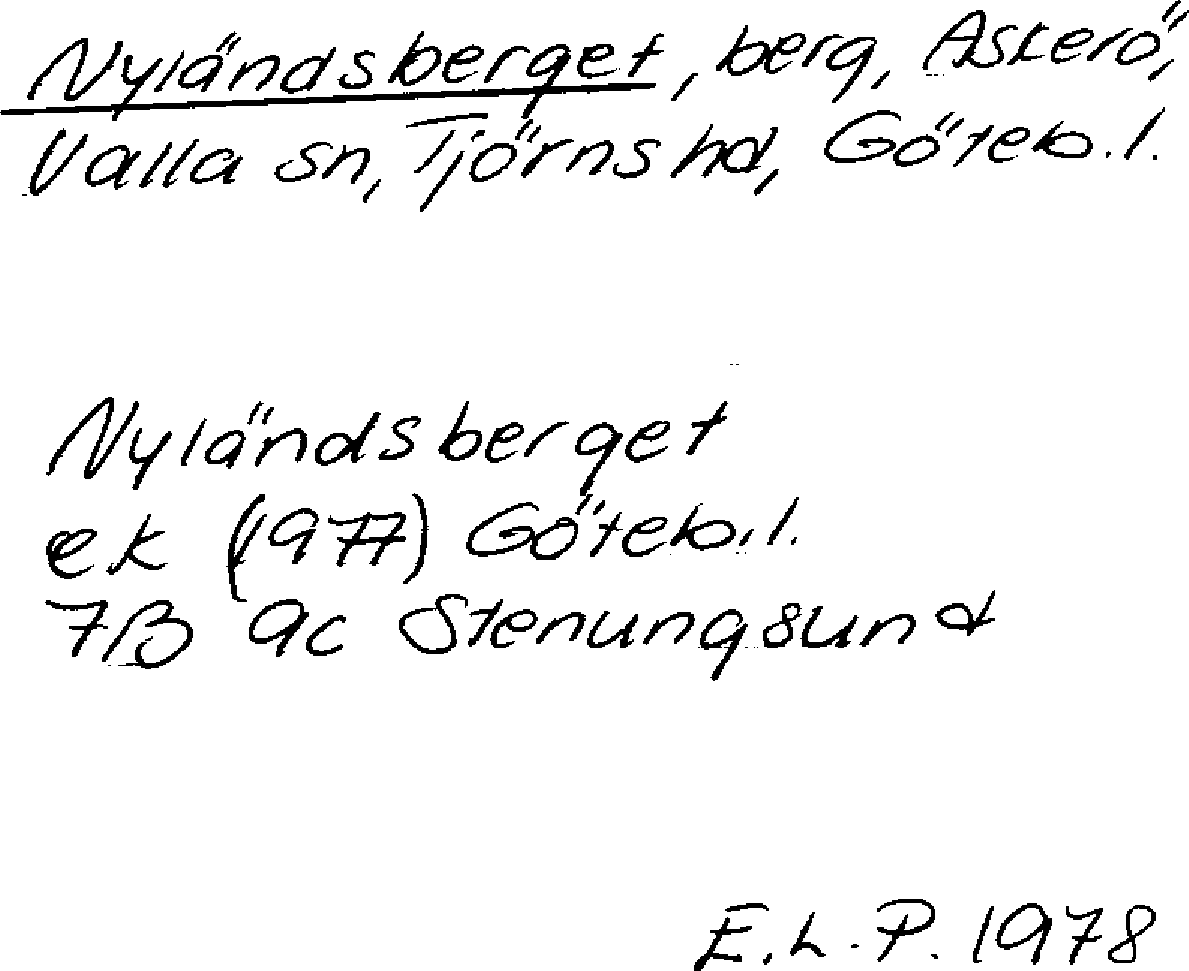 Nyländsberget, berg, Askerö,
Valla sn, Tjörns hd, Göteb.l.
Nyländsberget
ek (1977) Göteb.l.
7B 9c Stenungsund
E.L.P. 1978